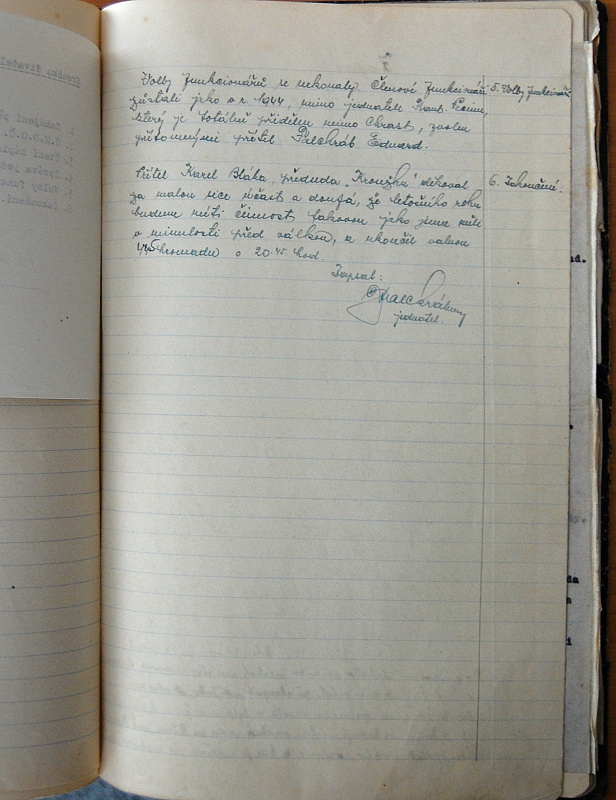 Volby funkcionářů se nekonaly. Členové funkcionáři
5. Volby funkcionářů
zůstali jako v r. 1944, mimo jednatele Frant.
který je totálně přidělen mimo Chrast, zvolen
přítomnými přítel Palchráb Eduard.
Přítel Karel Bláka, předseda „Kroužku" děkoval
6. Zakončení.
za malou sice účast a doufá, že letošního roku
budeme míti činnost takovou jako jsme měli
v minulosti před válkou, a ukončil valnou
hromadu o 20. hod.
Zapsal:
jednatel.